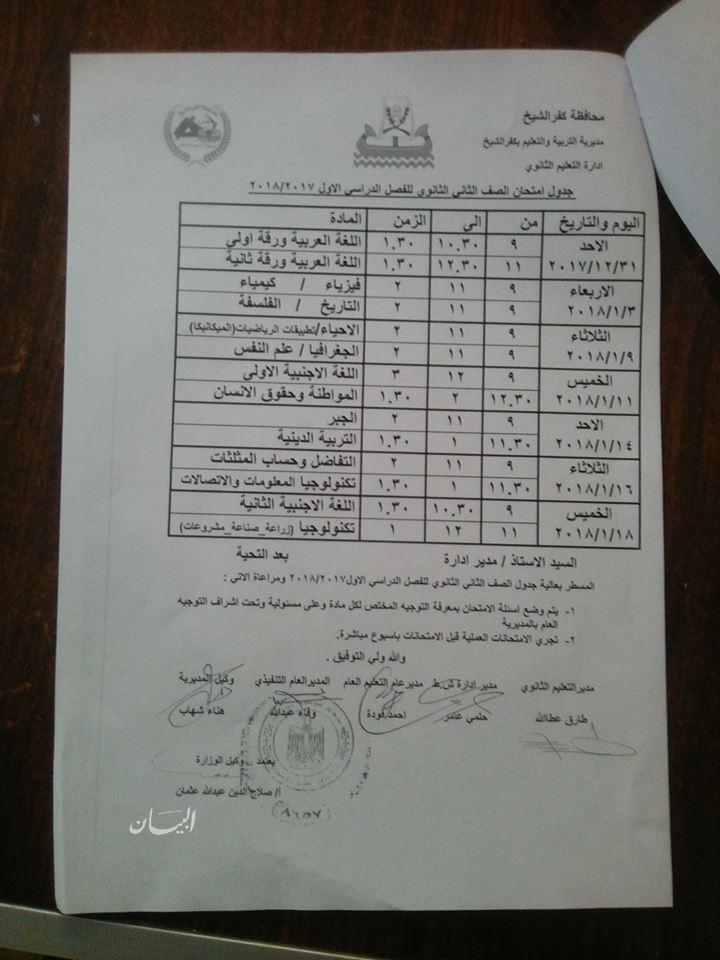 محافظة كفرالشيخ
مديرية التربية والتعليم بكفرالشيخ
ادارة التعليم الثانوي
جدول امتحان الصف الثاني الثانوي للفصل الدراسي الاول ٢٠١٨/٢٠١٧
اليوم والتاريخ من الى الزمن المادة
الاحد ٩ ١٠.٣٠ ١.٣٠ اللغة العربية ورقة اولى
٢٠١٧/١٢/٣١ ١١ ١٢.٣٠ ١.٣٠ اللغة العربية ورقة ثانية
الاربعاء ٩ ١١ ٢ فيزياء / كيمياء
٢٠١٨/١/٣ ٩ ١١ ٢ التاريخ / الفلسفة
الثلاثاء ٩ ١١ ٢ الاحياء/تطبيقات الرياضيات(الميكانيكا)
٢٠١٨/١/٩ ٩ ١١ ٢ الجغرافيا / علم النفس
الخميس ٩ ١٢ ٣ اللغة الاجنبية الاولى
٢٠١٨/١/١١ ١٢.٣٠ ٢ ١.٣٠ المواطنة وحقوق الانسان
الاحد ٩ ١١ ٢ الجبر
٢٠١٨/١/١٤ ١١.٣٠ ١ ١.٣٠ التربية الدينية
الثلاثاء ٩ ١١ ٢ التفاضل وحساب المثلثات
٢٠١٨/١/١٦ ١١.٣٠ ١ ١.٣٠ تكنولوجيا المعلومات والاتصالات
الخميس ٩ ١٠.٣٠ ١.٣٠ اللغة الاجنبية الثانية
٢٠١٨/١/١٨ ١١ ١٢ ١ تكنولوجيا (زراعة_صناعة_مشروعات)
السيد الاستاذ / مدير ادارة بعد التحية
المسطر بعالية جدول الصف الثاني الثانوي للفصل الدراسي الاول٢٠١٨/٢٠١٧ ومراعاة الاتي :
١- يتم وضع اسئلة الامتحان بمعرفة التوجيه المختص لكل مادة وعلى مسئولية وتحت اشراف التوجيه
العام بالمديرية
٢- تجري الامتحانات العملية قبل الامتحانات باسبوع مباشرة.
والله ولي التوفيق .
مديرالتعليم الثانوي مدير ادارة ش.ط مديرعام التعليم العام المديرالعام التنفيذي وكيل المديرية
طارق عطاالله حلمي عامر احمد فودة وفاء عبدالله هناء شهاب
يعتمد .. وكيل الوزارة
أ/ صلاح الدين عبدالله عثمان
البيان